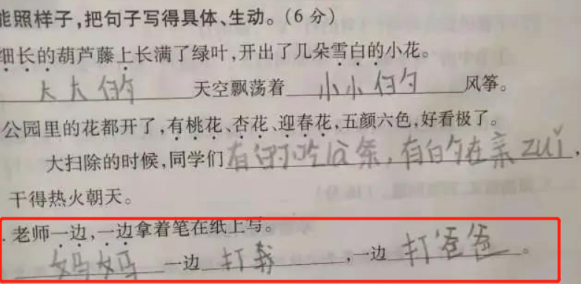 能照样子,把句子写得具体、生动。(6分)
细长的葫芦藤上长满了绿叶,开出了几朵雪白的小花。
大大的天空飘荡着小小的风筝。
公园里的花都开了,有桃花、杏花、迎春花,五颜六色,好看极了。
大扫除的时候,同学们有的小吃谷条,有的在亲zuǐ,
干得热火朝天。
.老师一边,一边拿着笔在纸上写。
妈妈一边打我,一边打爸爸。